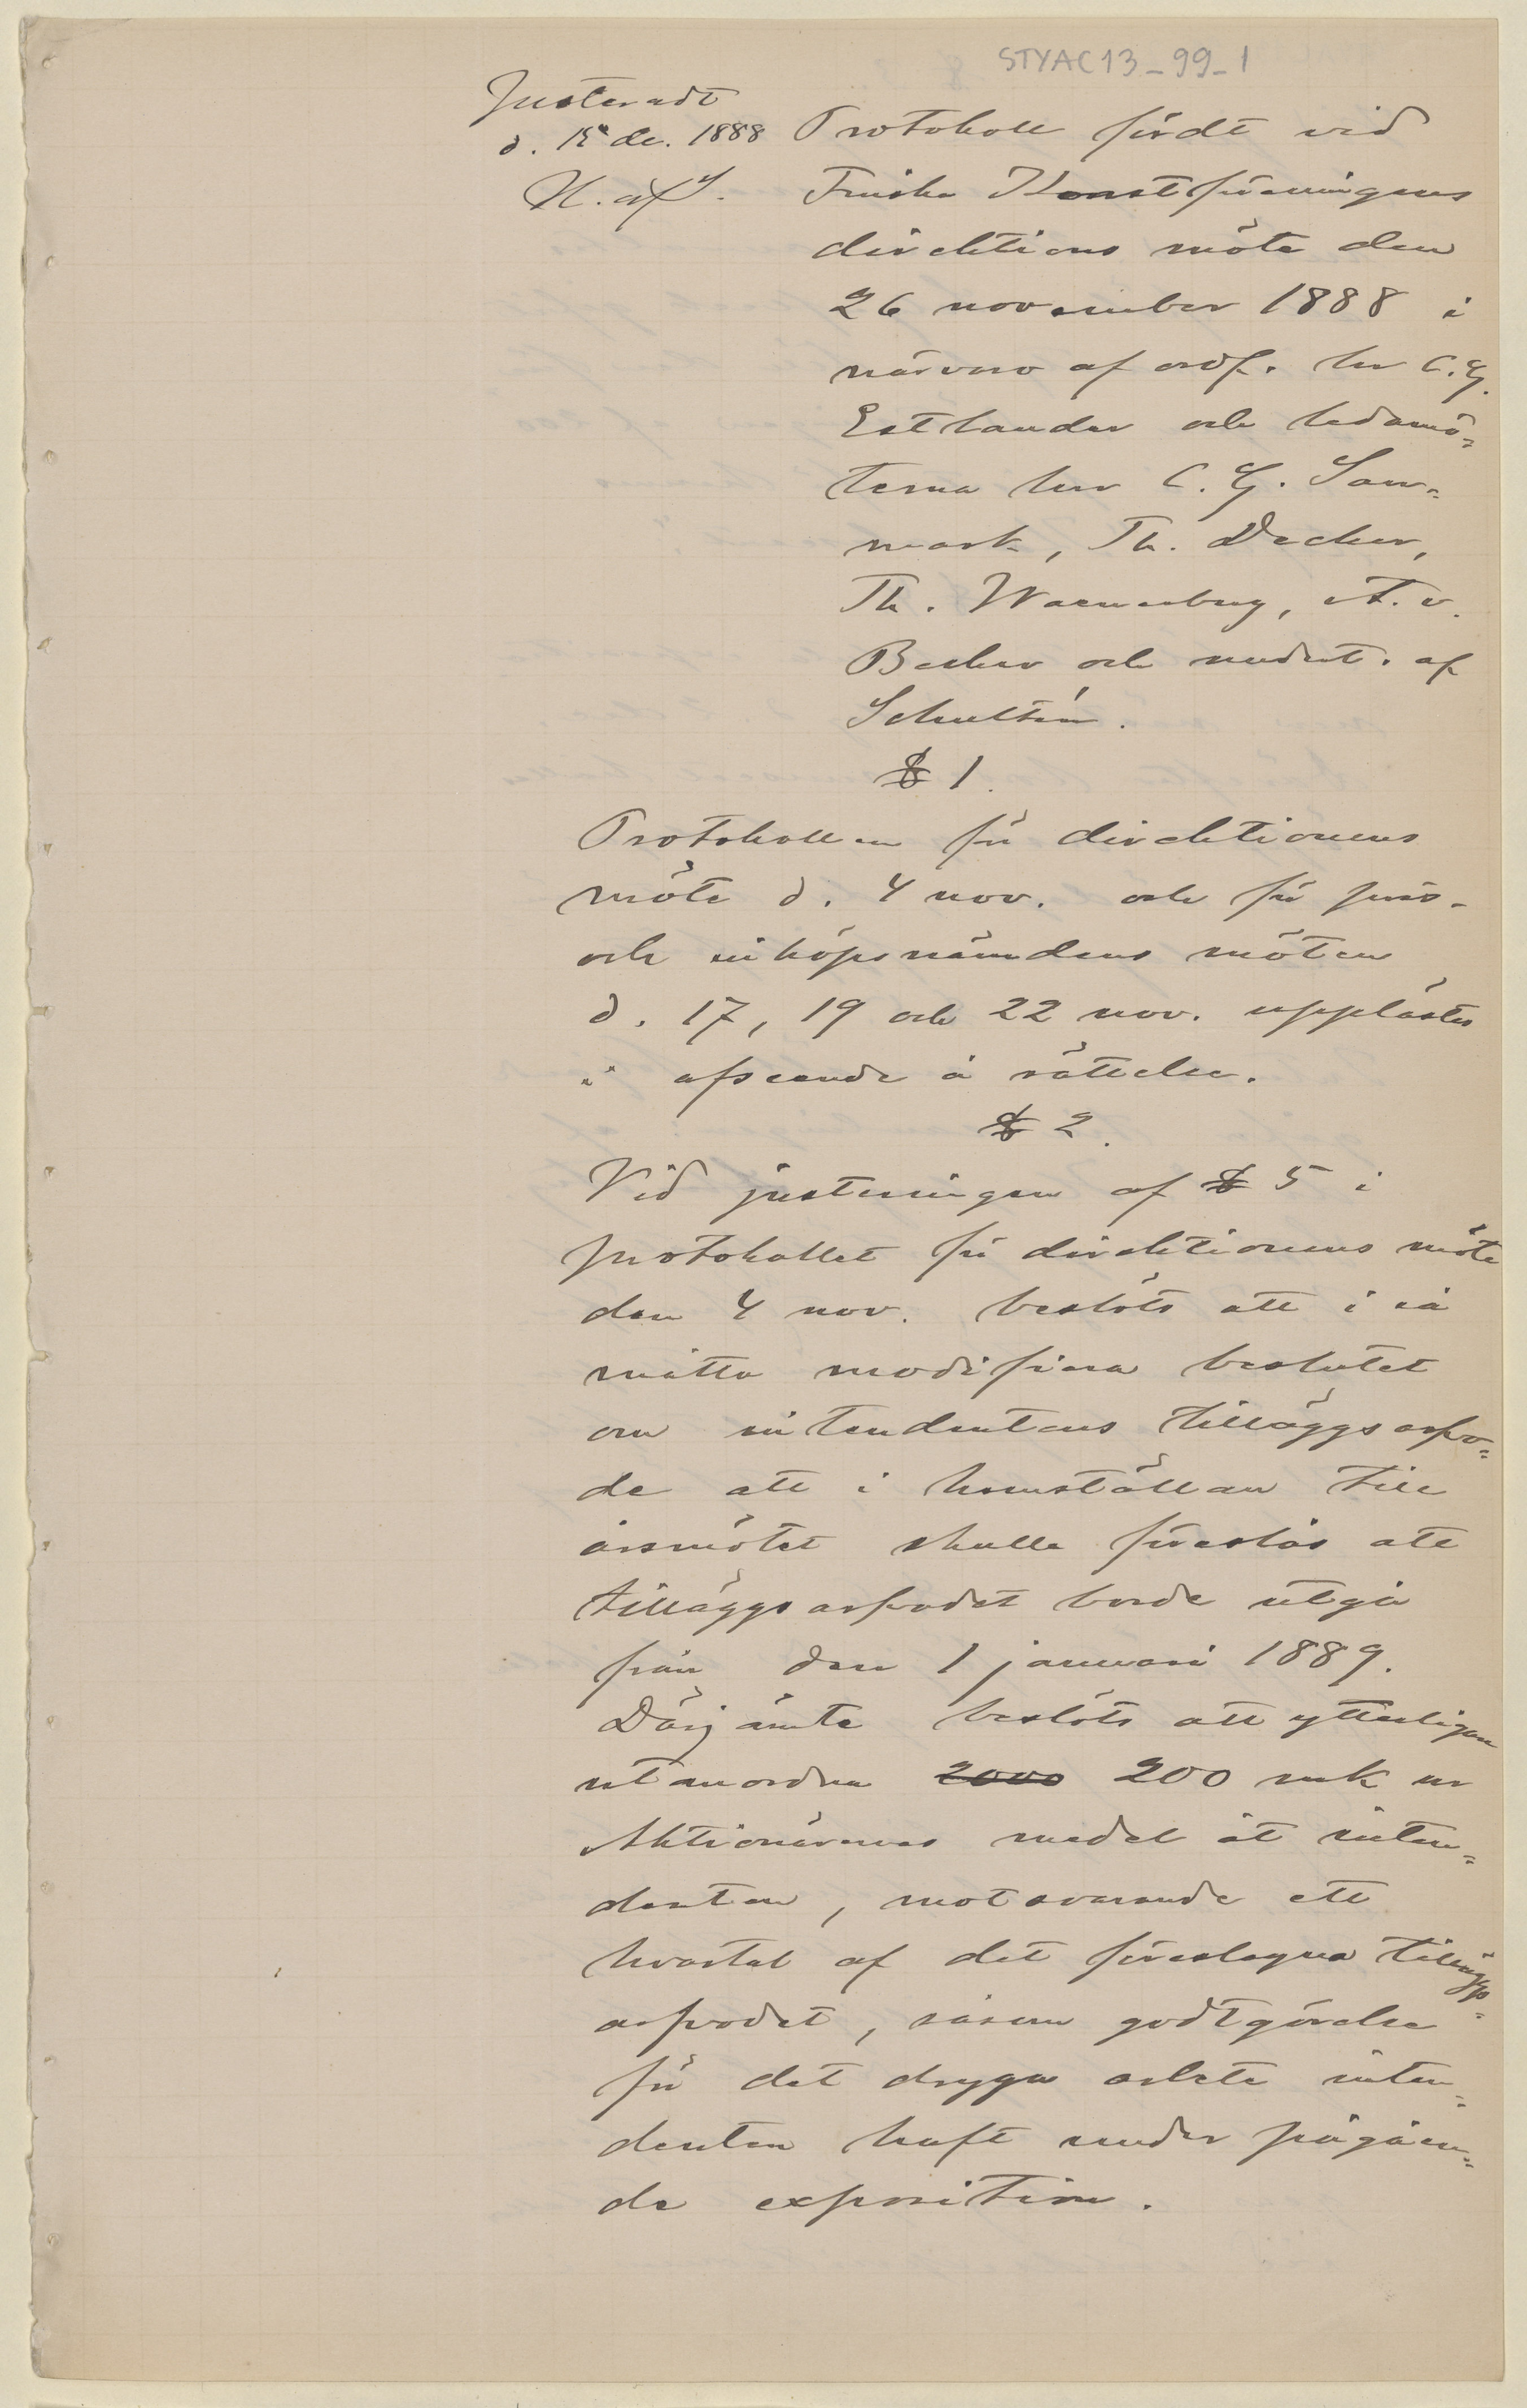 STYAC13_99_1
Justeradt
d. 15 de. 1888
H. af S.
Protokoll fördt vid
Finska Konstföreningens
direktions möte den
26 november 1888 i
närvaro af ordf. hr C. G.
Estlander och ledamö=
terna hrr C. G. San=
mark, Th. Decker,
Th. Waenerberg, A. v.
Becker och undert. af
Schultén.
§ 1.
Protokollen för direktionens
möte d. 4 nov. och för pris-
och inköpsnämdens möten
d. 17, 19 och 22 nov. upplästes
i afseende å rättelse.
§ 2.
Vid justeringen af § 5 i
protokollet för direktionens möte
den 4 nov. beslöts att i så
måtto modifiera beslutet
om intendentens tilläggsarfvo=
de att i hemställan till
årsmötet skulle föreslås att
tilläggsarfvodet borde utgå
från den 1 januari 1889.
Därjämte beslöts att ytterligare
utanordna 2000 200 mk ur
Aktionärernas medel åt inten=
denten, motsvarande ett
kvartal af det föreslagna tilläggs=
arfvodet, såsom godtgörelse
för det dryga arbete inten=
denten haft under pågåen=
de exposition.